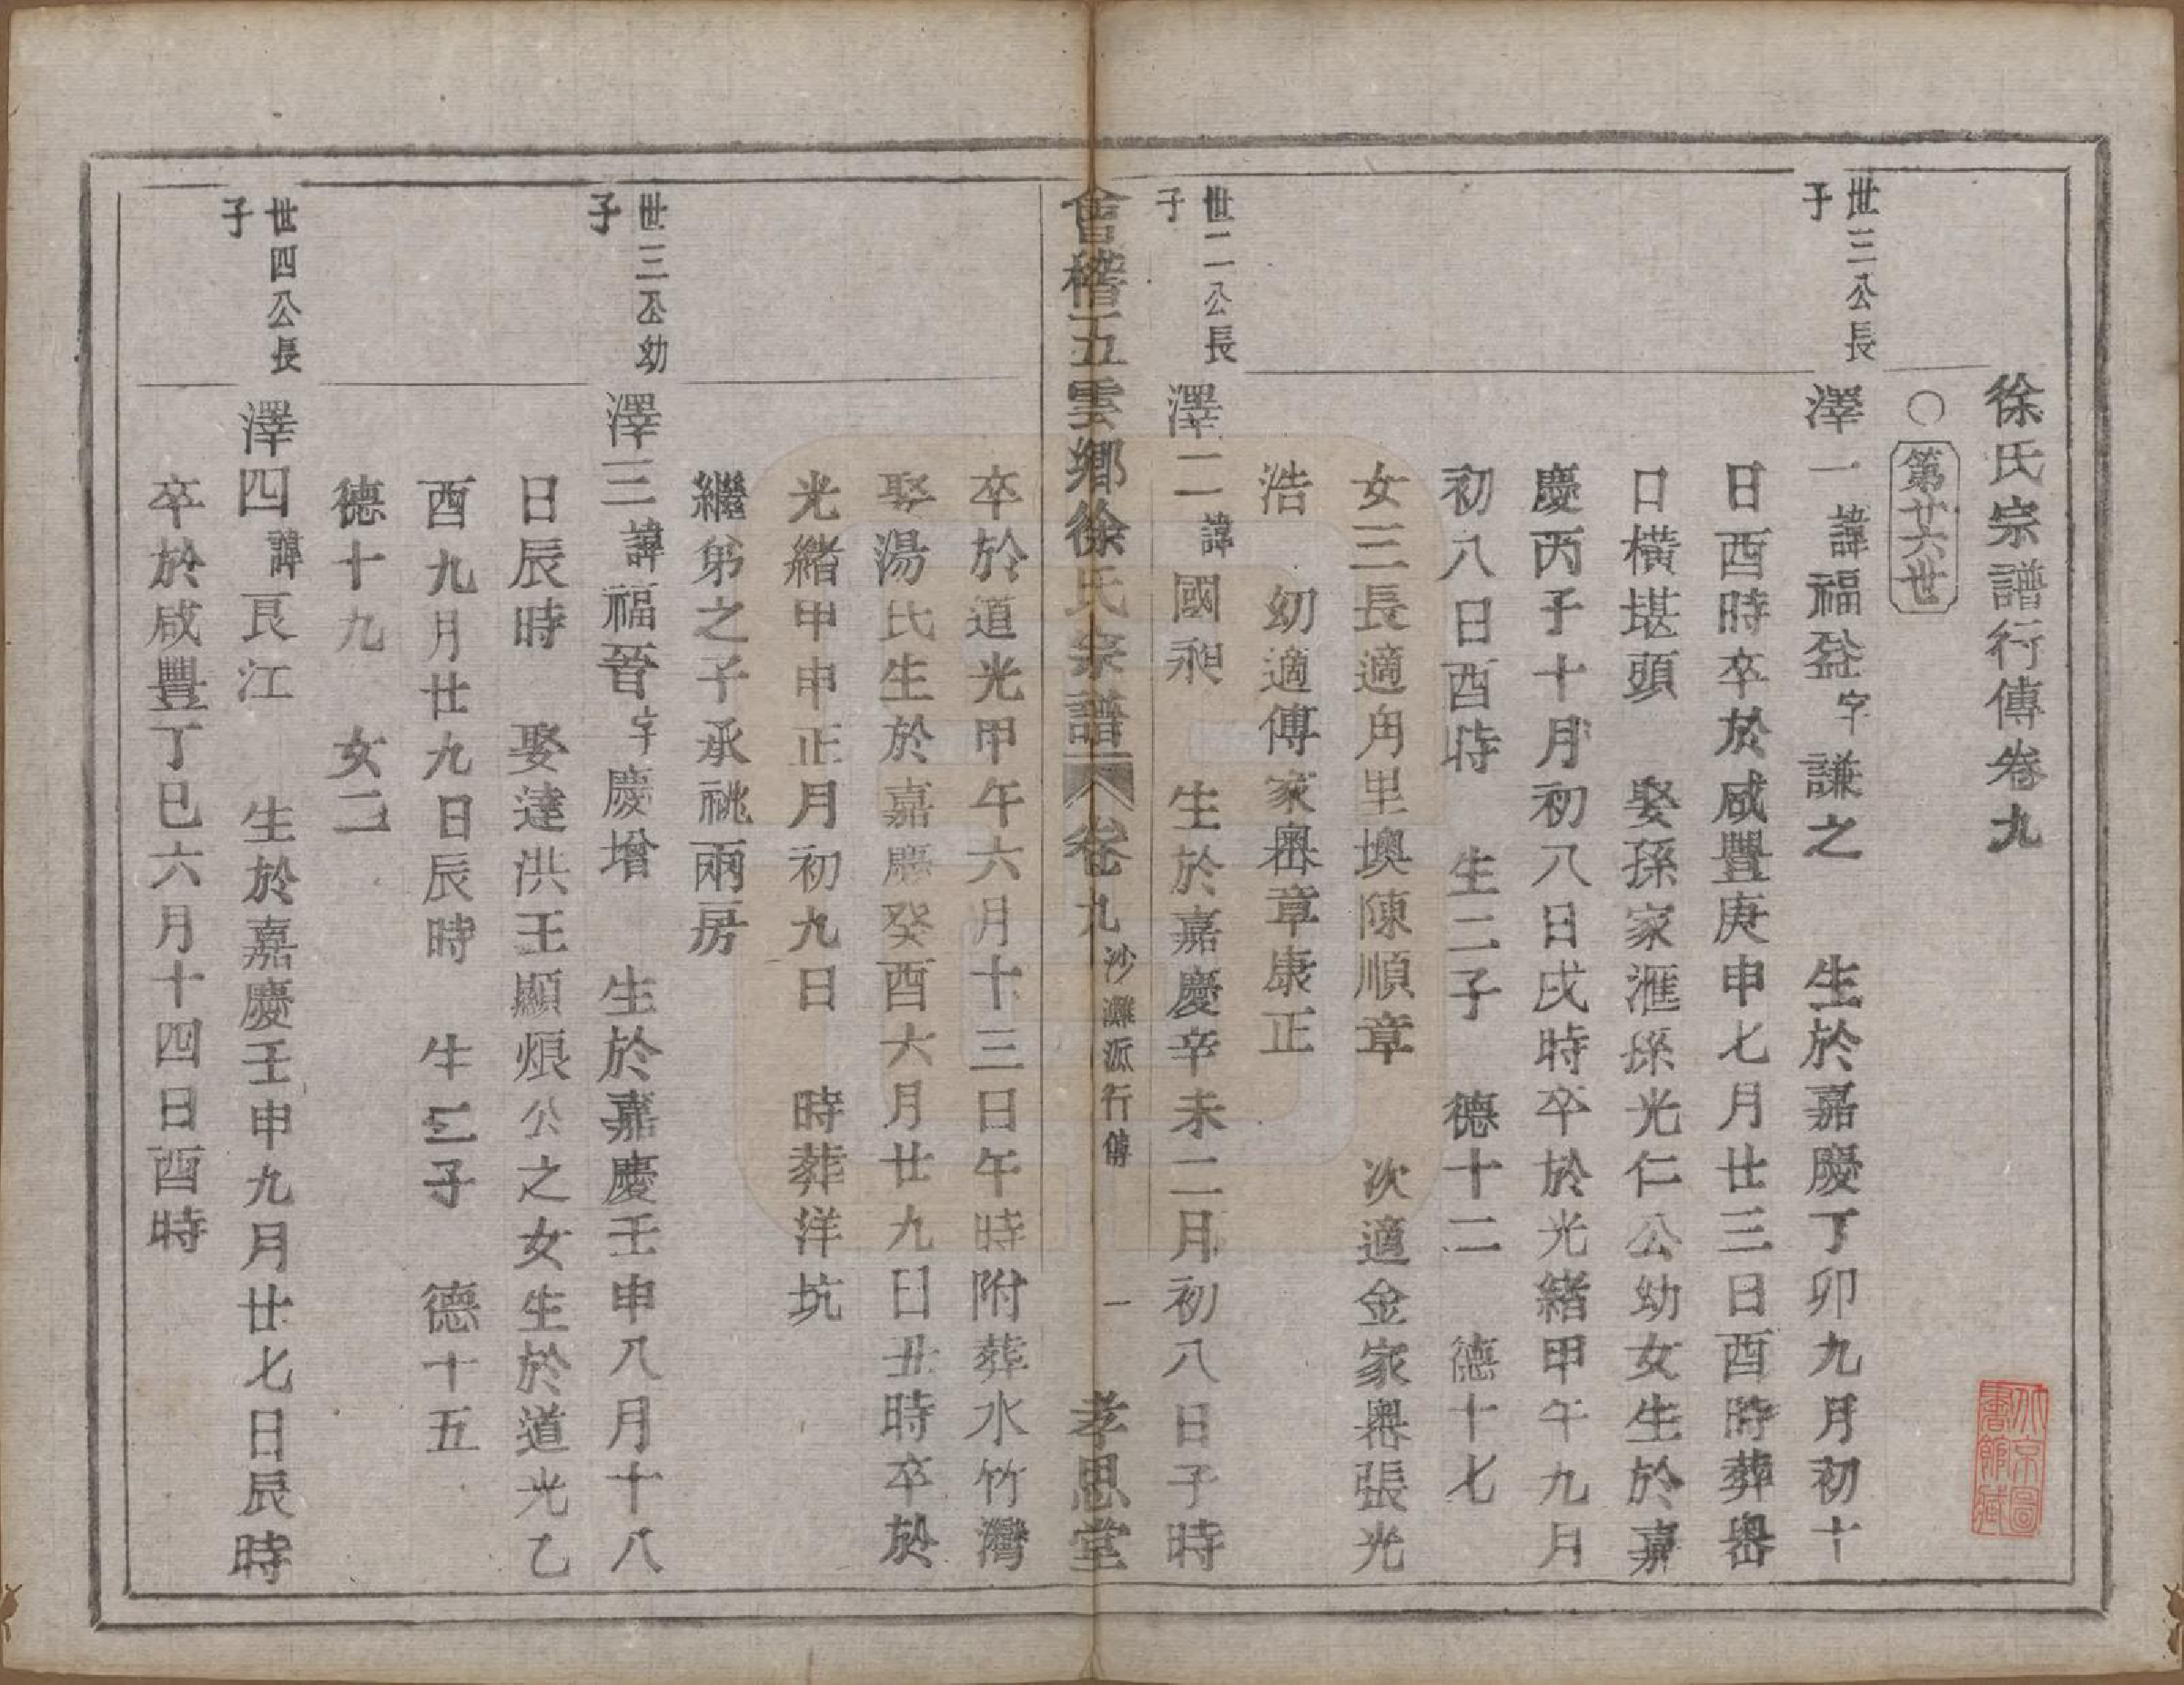 徐氏宗譜行傳卷九
○第廿六世
世三公長
子
澤一諱福㿽字謙之　生於嘉慶丁卯九月初十
日酉時卒於咸豐庚申七月廿三日酉時葬嶴
口橫堪頭　娶孫家滙孫光仁公幼女生於嘉
慶丙子十月初八日戌時卒於光緒甲午九月
初八日酉時　生二子　德十二　德十七
女三長適甪里墺陳順章　次適金家嶴張光
浩　幼適傅家嶴章康正
世二公長
子
澤二諱國昶　生於嘉慶辛未二月初八日子時
會稽五雲鄉徐氏宗譜　卷九　沙灘派行傳　一　孝思堂
卒於道光甲午六月十三日午時附葬水竹灣
娶湯氏生於嘉慶癸酉六月廿九日丑時卒於
光緒甲申正月初九日　時葬洋坑
繼弟之子承祧兩房
世三公幼
子
澤三諱福晉字慶增　生於嘉慶壬申八月十八
日辰時　娶達洪王顯烺公之女生於道光乙
酉九月廿九日辰時　生二子　德十五
德十九　女二
世四公長
子
澤四諱良江　生於嘉慶壬申九月廿七日辰時
卒於咸豐丁巳六月十四日酉時